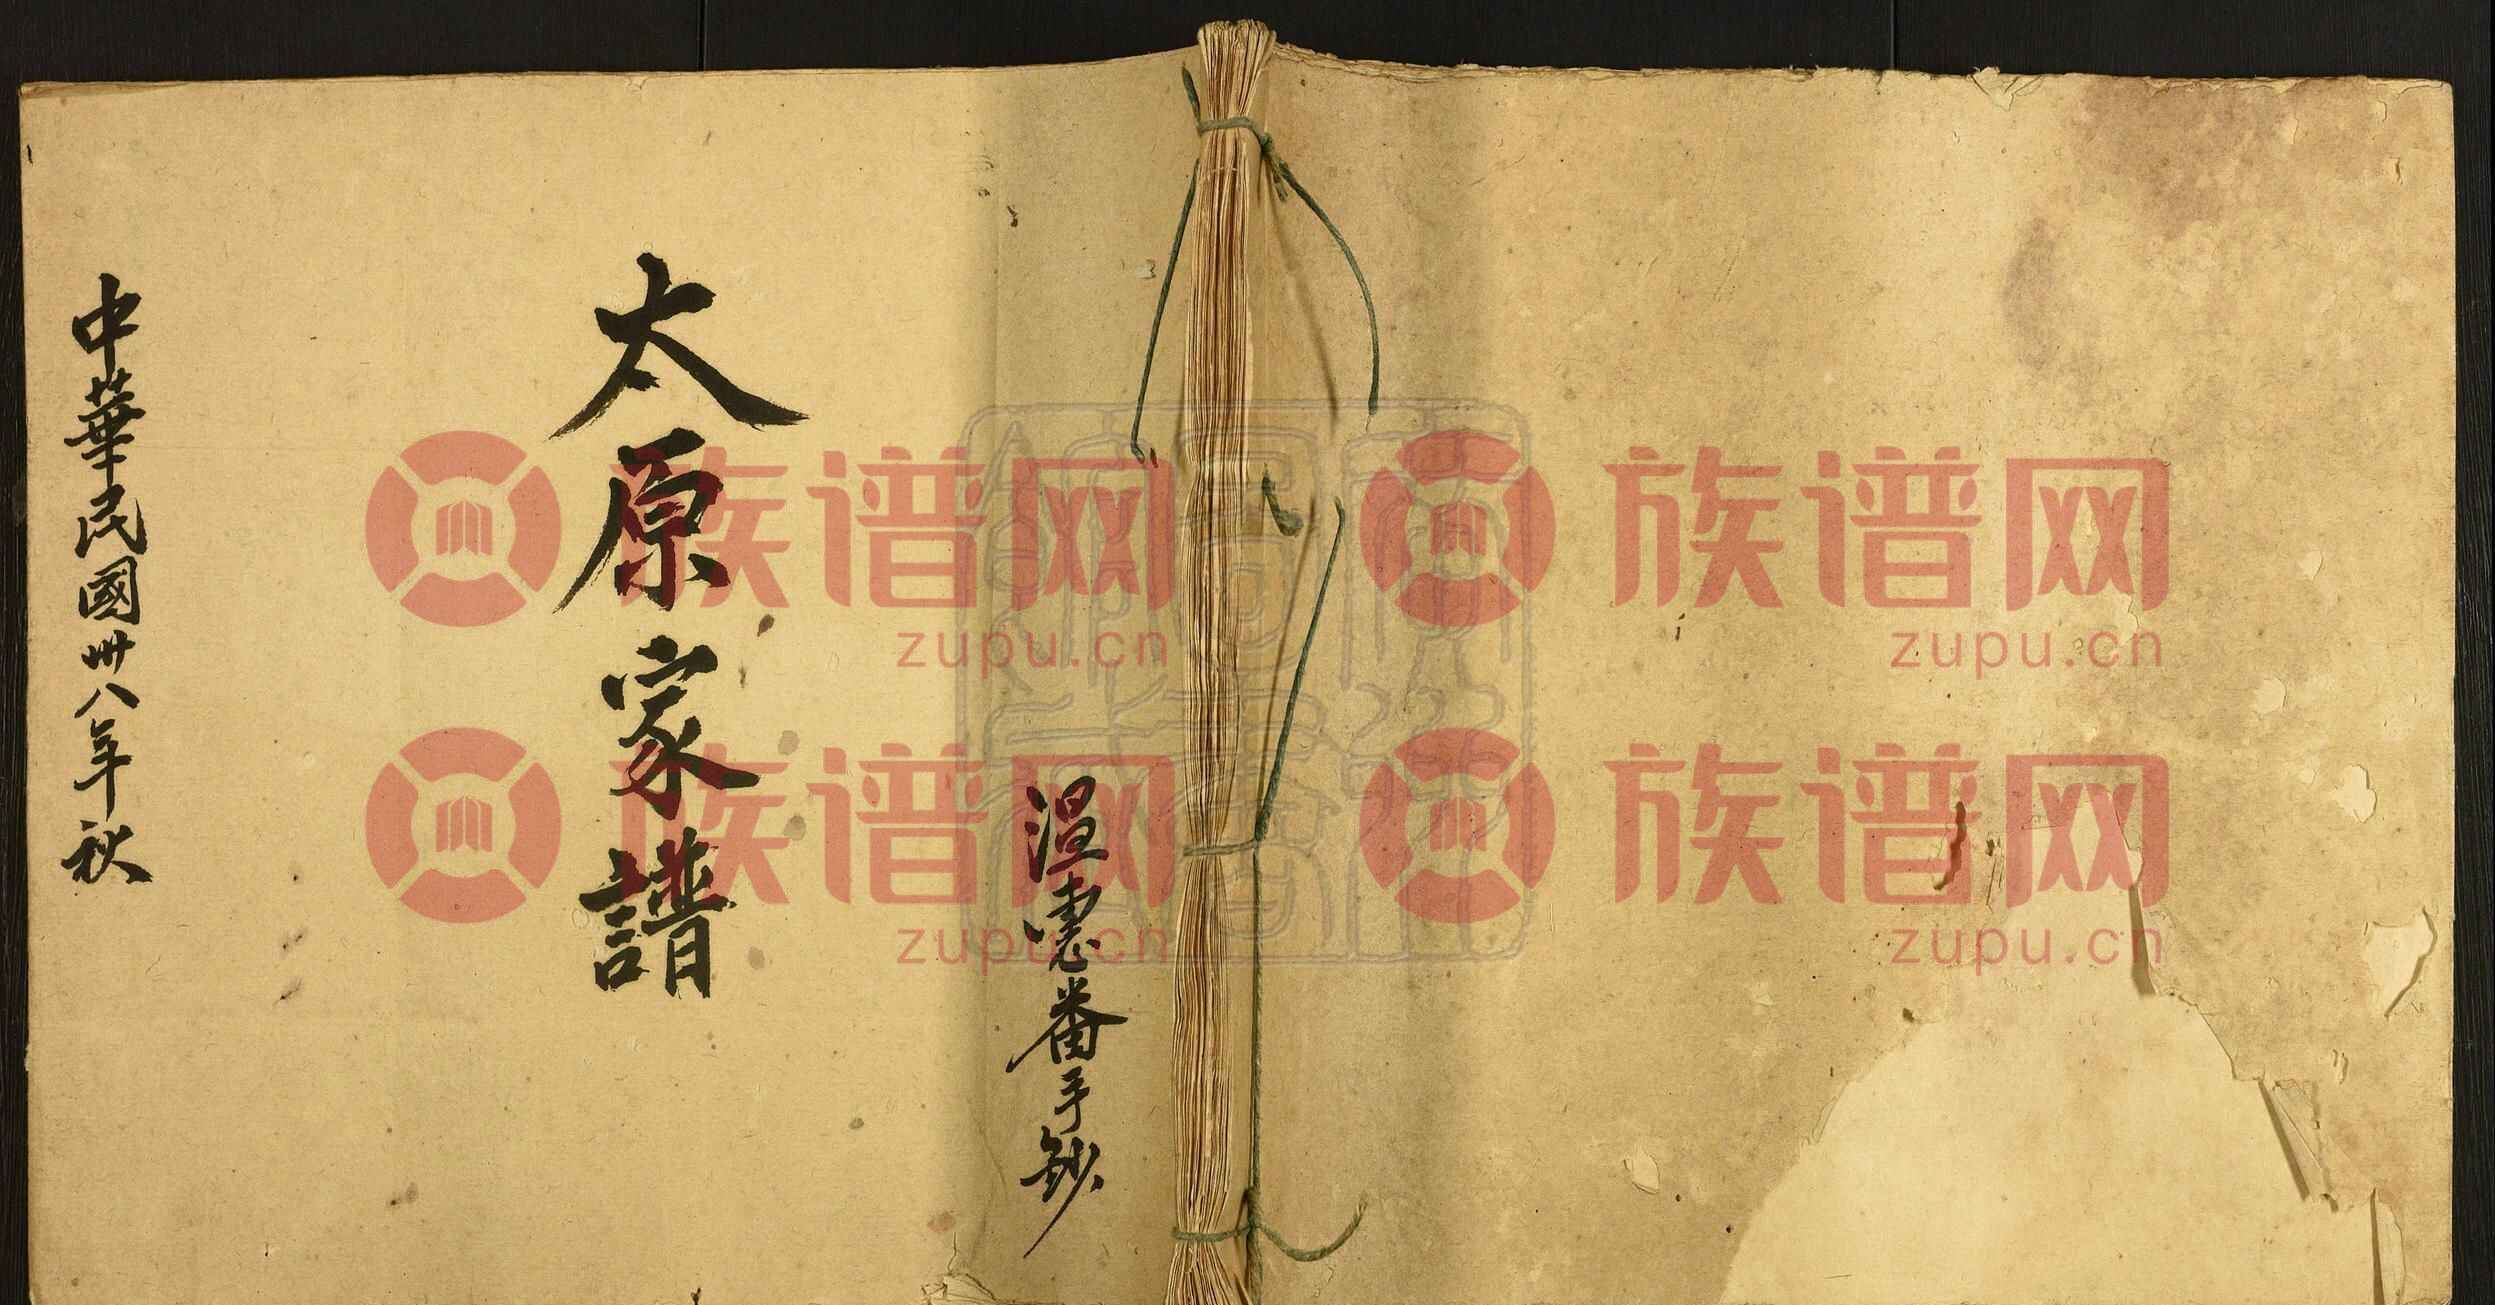 太原家譜
中華民國卅八年秋
溫憲番手鈔
族谱网
zupu.cn
族谱网
zupu.cn
族谱网
zupu.cn
族谱网
zupu.cn